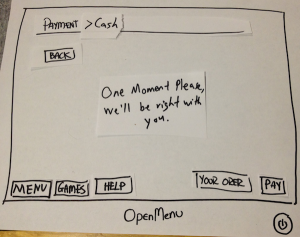 Payment > Cash
BACK
One Moment Please,
we'll be right with
you.
MENU GAMES HELP YOUR ORER PAY
OpenMenu